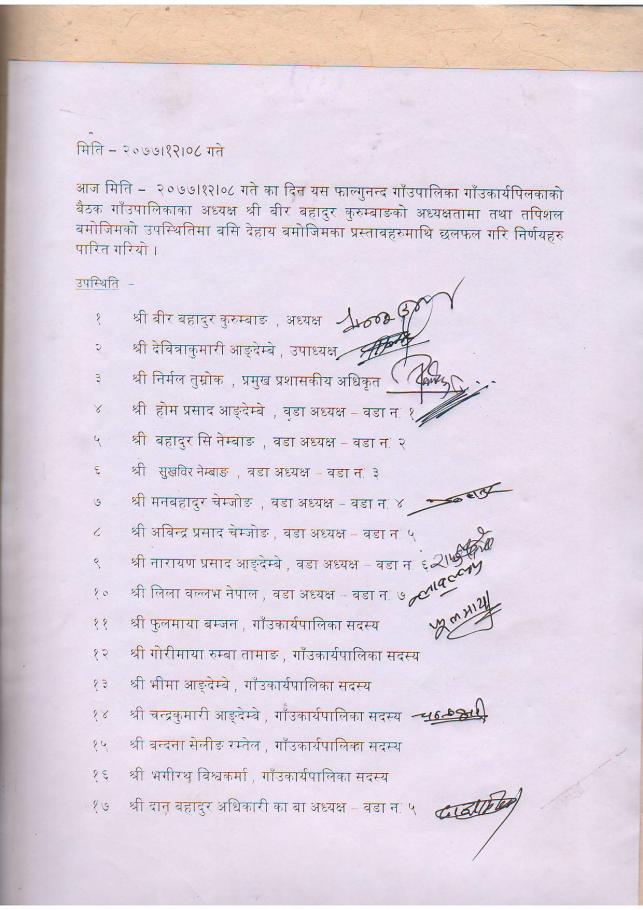 मिति – २०७७।१२।०८ गते
आज मिति – २०७७।१२।०८ गते का दिन यस फाल्गुनन्द गाँउपालिका गाँउकार्यपिलकाको
बैठक गाँउपालिकाका अध्यक्ष श्री बीर बहादुर कुरुम्बाङको अध्यक्षतामा तथा तपिशल
बमोजिमको उपस्थितिमा बसि देहाय बमोजिमका प्रस्तावहरुमाथि छलफल गरि निर्णयहरु
पारित गरियो ।
उपस्थिति –
१ श्री बीर बहादुर कुरुम्बाङ , अध्यक्ष
२ श्री देवित्राकुमारी आङ्देम्बे , उपाध्यक्ष
३ श्री निर्मल तुम्रोक , प्रमुख प्रशासकीय अधिकृत
४ श्री होम प्रसाद आङ्देम्बे , वडा अध्यक्ष – वडा न. १
५ श्री बहादुर सि नेम्बाङ , वडा अध्यक्ष – वडा न. २
६ श्री सुखविर नेम्बाङ , वडा अध्यक्ष – वडा न. ३
७ श्री मनबहादुर चेम्जोङ , वडा अध्यक्ष – वडा न. ४
८ श्री अबिन्द्र प्रसाद चेम्जोङ , वडा अध्यक्ष – वडा न. ५
९ श्री नारायण प्रसाद आङ्देम्बे , वडा अध्यक्ष – वडा न. ६
१० श्री लिला वल्लभ नेपाल , वडा अध्यक्ष – वडा न. ७
११ श्री फुलमाया बम्जन , गाँउकार्यपालिका सदस्य फूलमाया
१२ श्री गोरीमाया रुम्बा तामाङ , गाँउकार्यपालिका सदस्य
१३ श्री भीमा आङ्देम्बे , गाँउकार्यपालिका सदस्य
१४ श्री चन्द्रकुमारी आङ्देम्बे , गाँउकार्यपालिका सदस्य
१५ श्री बन्दना सेलीङ रम्तेल , गाँउकार्यपालिका सदस्य
१६ श्री भगीरथ बिश्वकर्मा , गाँउकार्यपालिका सदस्य
१७ श्री दान बहादुर अधिकारी का बा अध्यक्ष – वडा न. ५